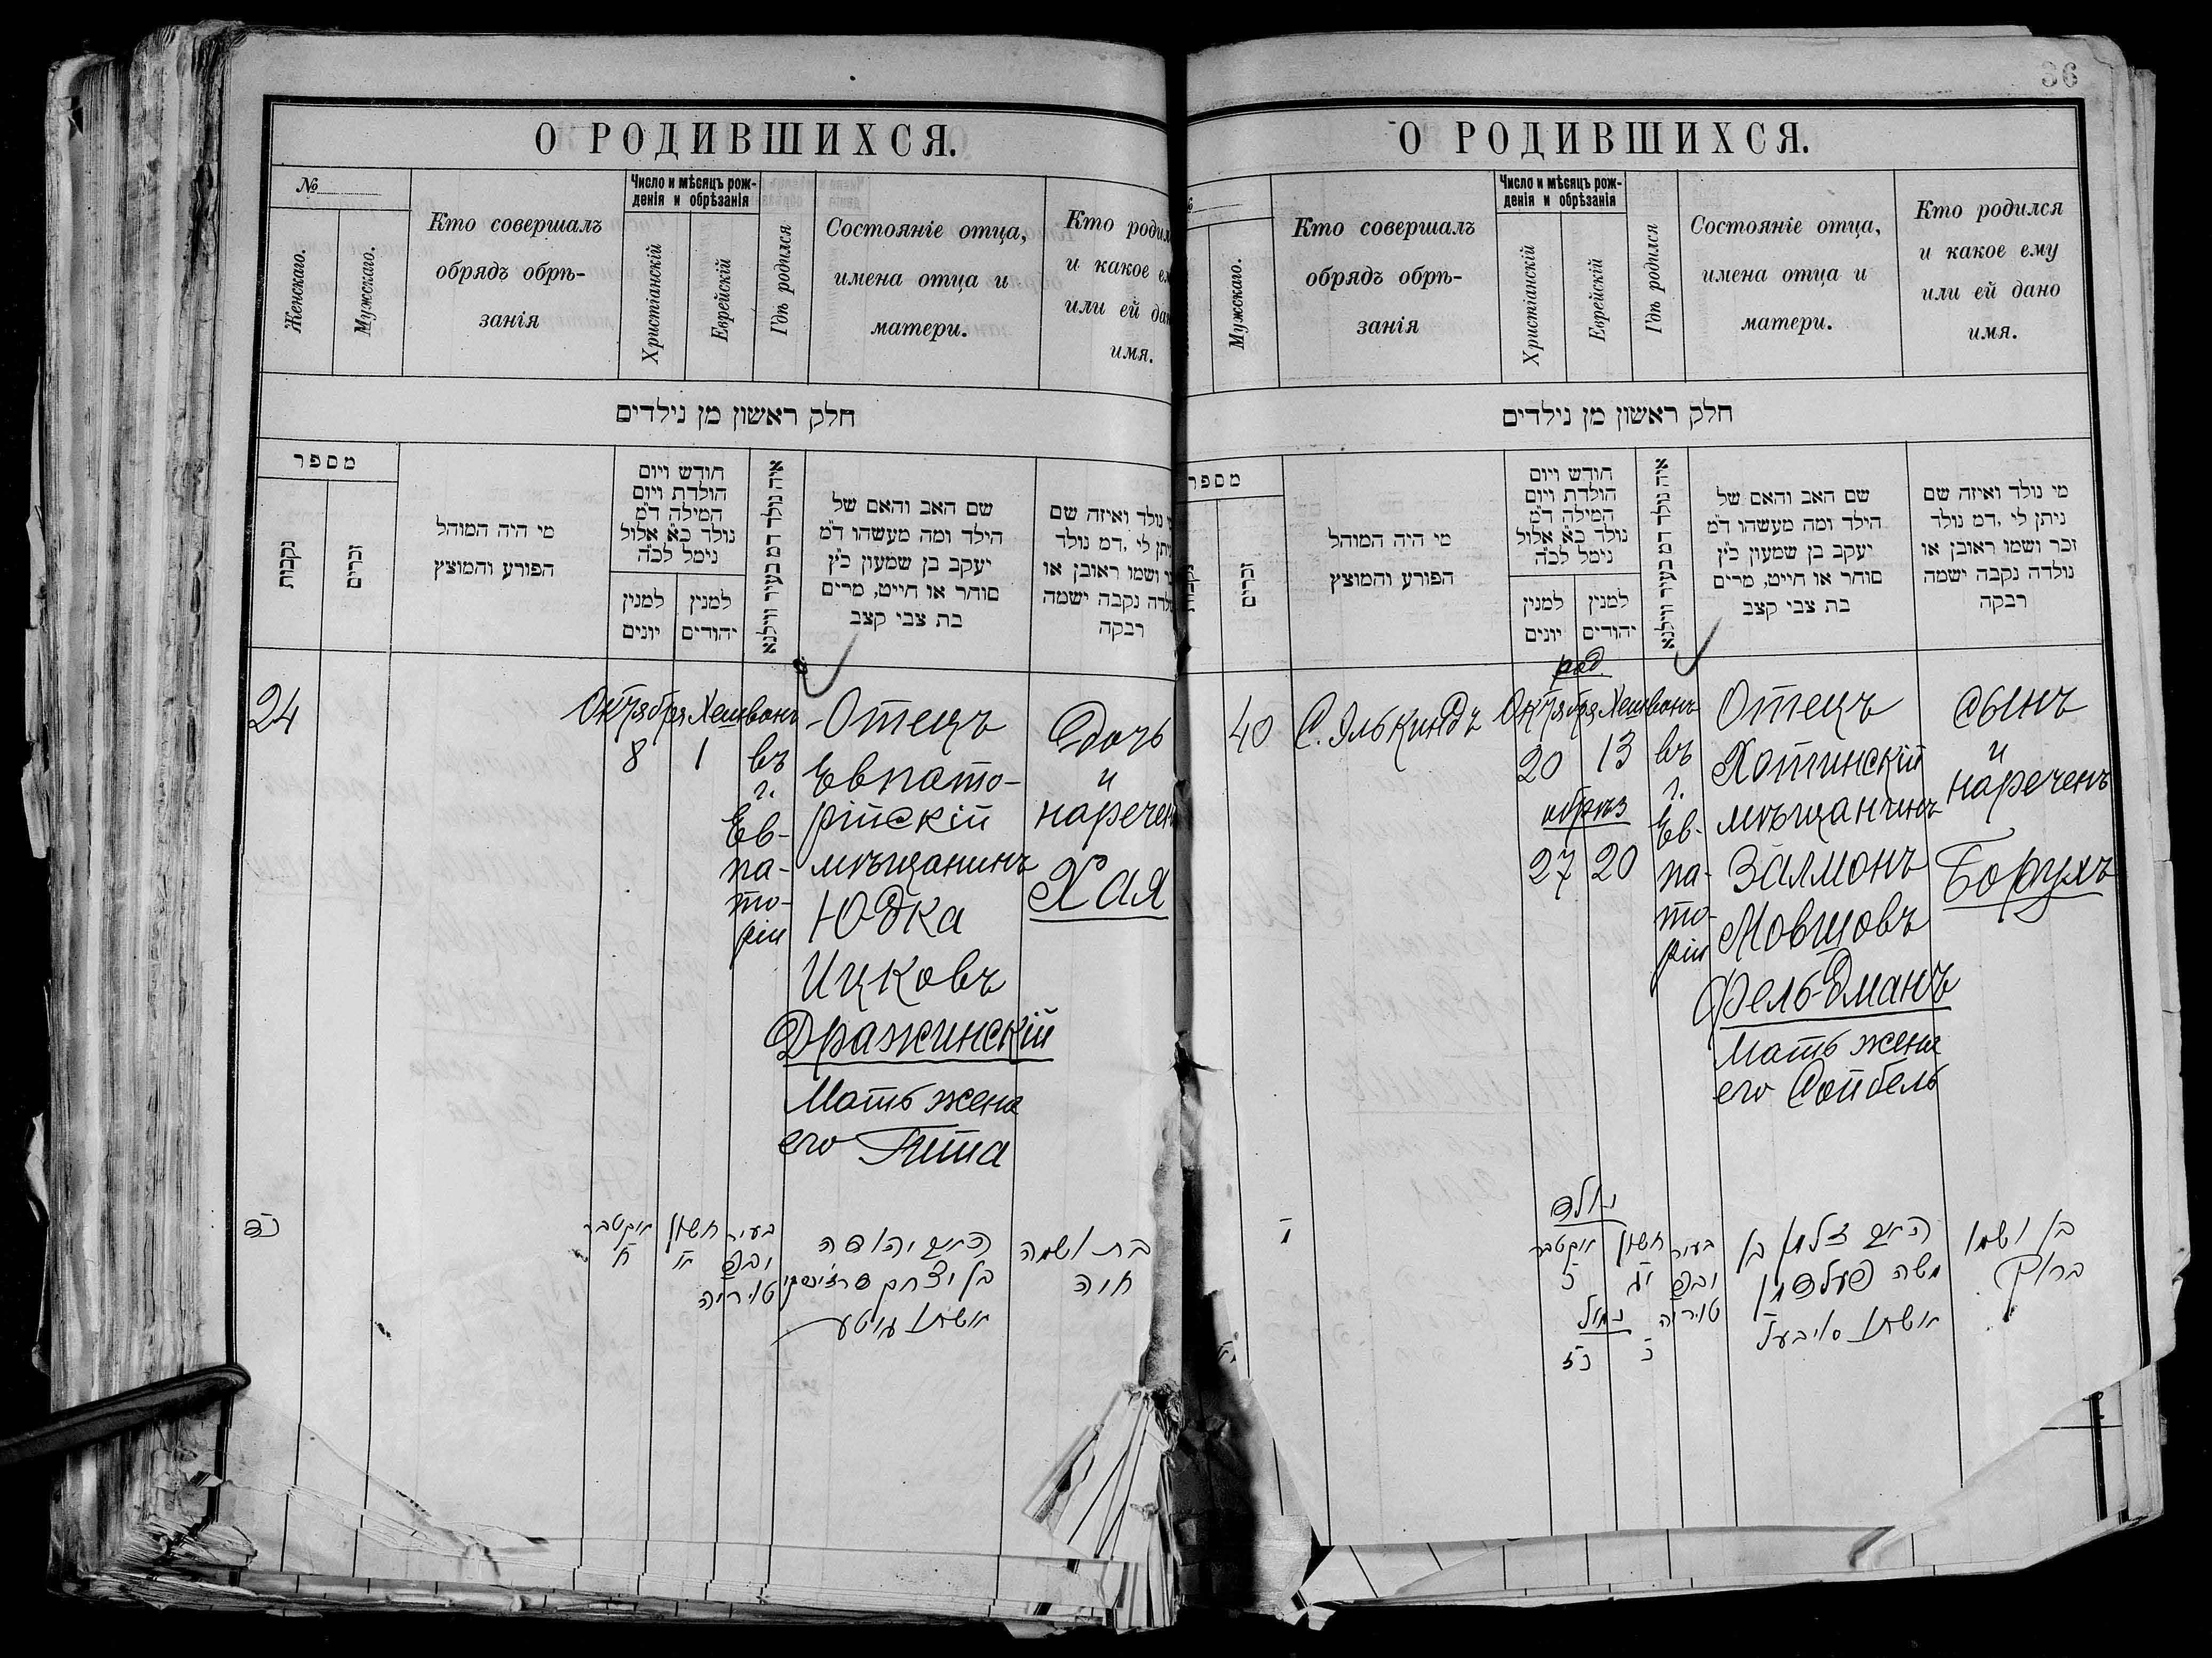 О РОДИВШИХСЯ.
№
Женскаго.
Мужскаго.
Кто совершалъ
обрядъ обрѣ-
занія
Число и мѣсяцъ рож-
денія и обрѣзанія
Христіанскій
Еврейскій
Гдѣ родился
Состояніе отца,
имена отца и
матери.
Кто родил
и какое ем
или ей дан
имя.
חלק ראשון מן נילדים
מספר
נקבות
זכרים
מי היה המוהל
הפורע והמוצץ
חודש ויום
הולדת ויום
המילה ד"מ
נולד כ"א אלול
נימל לכ"ה
למנין
יונים
למנין
יהודים
איה נולד דמ בעיר ווילנא
שם האב והאם של
הילד ומה מעשהו ד"מ
יעקב בן שמעון כ"ץ
סוחר או חייט, מרים
בת צבי קצב
נולד ואיזה שם
יתן לי ,דמ נולד
ושמו ראובן או
לדה נקבה ישמה
רבקה
24
Октября Хешвонъ
8 1
въ
г.
Ев-
па-
то-
ріи
Отецъ
Евпато-
рійскій
мѣщанинъ
Юдка
Ицковъ
Дражинскій
Мать жена
его Гита
Дочь
и
наречен
Хая
כד
אוקטבר
ח
חשון
א
בעיר
יבפ
טוריה
האב יהודה
בן יצחק דרזינסקי
אשתו גוטע
בת ושמה
חיה
36
О РОДИВШИХСЯ.
Мужскаго.
Кто совершалъ
обрядъ обрѣ-
занія
Число и мѣсяцъ рож-
денія и обрѣзанія
Христіанскій
Еврейскій
Гдѣ родился
Состояніе отца,
имена отца и
матери.
Кто родился
и какое ему
или ей дано
имя.
חלק ראשון מן נילדים
ספר
זכרים
מי היה המוהל
הפורע והמוצץ
חודש ויום
הולדת ויום
המילה ד"מ
נולד כ"א אלול
נימל לכ"ה
למנין
יונים
למנין
יהודים
איה נולד דמ בעיר ווילנא
שם האב והאם של
הילד ומה מעשהו ד"מ
יעקב בן שמעון כ"ץ
סוחר או חייט, מרים
בת צבי קצב
מי נולד ואיזה שם
ניתן לי ,דמ נולד
זכר ושמו ראובן או
נולדה נקבה ישמה
רבקה
40
С. Элькиндъ
род.
Октября Хешвонъ
20 13
обрѣз
27 20
въ
г.
Ев-
па-
то-
ріи
Отецъ
Хотинскій
мѣщанинъ
Залмонъ
Мовшовъ
Фельдманъ
Мать жена
его Сойбель
сынъ
и
нареченъ
Борухъ
נולד
אוקטבר
כ
חשון
יג
נמול
כז
כ
בעיר
יבפ
טוריה
האב זלמן בן
משה פעלדמן
אשתו סויבעל
בן ושמו
ברוך